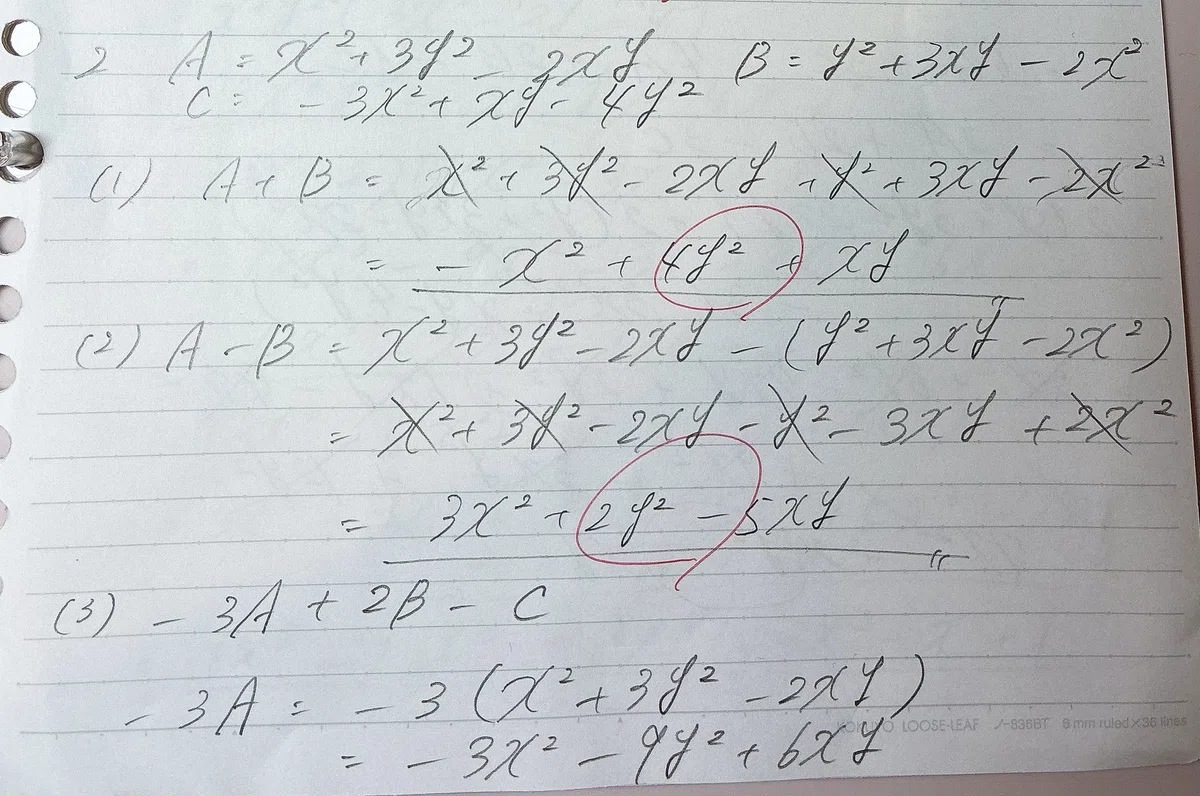 2 A = x² + 3y² - 2xy B = y² + 3xy - 2x²
C = - 3x² + xy - 4y²
(1) A + B = x² + 3y² - 2xy + y² + 3xy - 2x²
= - x² + 4y² + xy
(2) A - B = x² + 3y² - 2xy - (y² + 3xy - 2x²)
= x² + 3y² - 2xy - y² - 3xy + 2x²
= 3x² + 2y² - 5xy
(3) - 3A + 2B - C
- 3A = - 3 (x² + 3y² - 2xy)
KOKUYO LOOSE-LEAF ノ-836BT 6 mm ruled×36 lines
= - 3x² - 9y² + 6xy